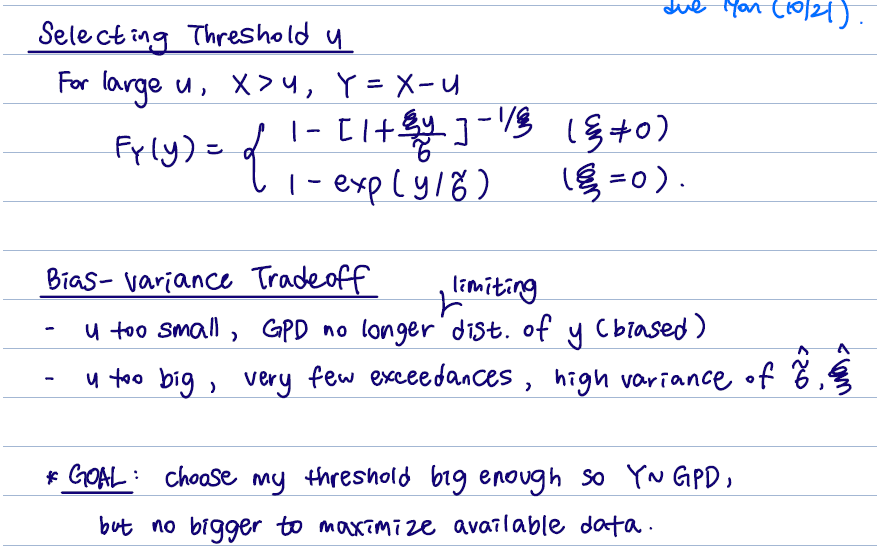 due Mon (10/21).
Selecting Threshold u
For large u, X > u, Y = X - u
F_Y(y) = { 1 - [1 + ξy/σ̃]^(-1/ξ) (ξ ≠ 0)
1 - exp(y/σ̃) (ξ = 0).
Bias-variance Tradeoff
- u too small, GPD no longer limiting dist. of y (biased)
- u too big, very few exceedances, high variance of σ̃̂, ξ̂
* GOAL: choose my threshold big enough so Y ~ GPD,
but no bigger to maximize available data.